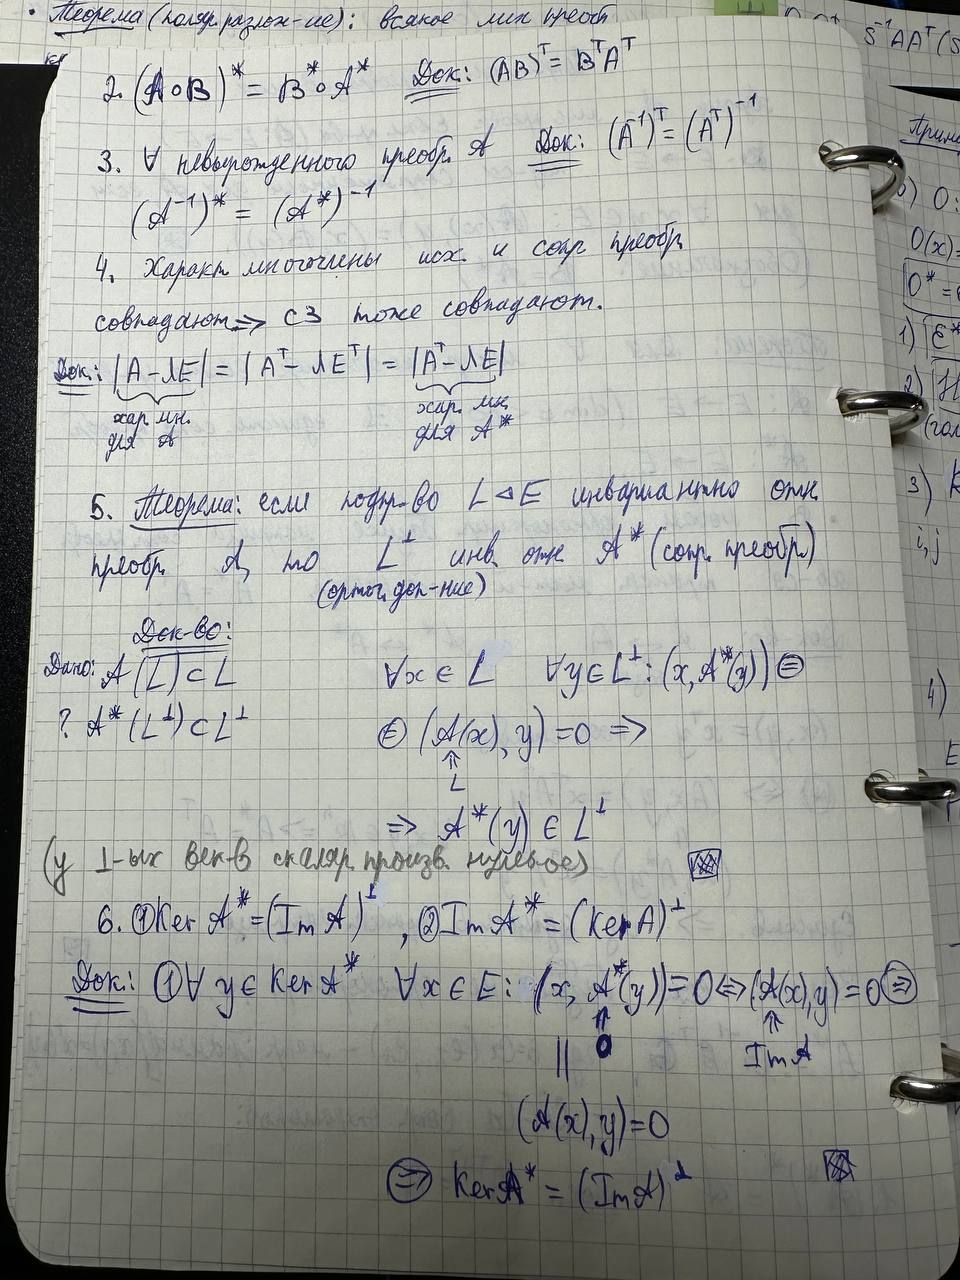 • Теорема (поляр. разлож-ие): всякое лин преобр
S⁻¹AAᵀ(S
2. (A∘B)* = B*∘A* Док: (AB)ᵀ = BᵀAᵀ
3. ∀ невырожденного преобр. A Док: (A⁻¹)ᵀ = (Aᵀ)⁻¹
(A⁻¹)* = (A*)⁻¹
4. Характ. многочлены исх. и сопр. преобр.
совпадают ⇒ СЗ тоже совпадают.
Док: |A − λE| = |Aᵀ − λEᵀ| = |Aᵀ − λE|
хар. мн. хар. мн.
для A для A*
5. Теорема: если подпр-во L ⊲ E инвариантно отн.
преобр. A, то L^⊥ инв. отн. A* (сопр. преобр.)
(ортог. доп-ние)
Док-во:
Дано: A(L) ⊂ L ∀x ∈ L ∀y ∈ L^⊥: (x, A*(y)) ⊜
? A*(L^⊥) ⊂ L^⊥ ⊜ (A(x), y) = 0 ⇒
⇑
L
⇒ A*(y) ∈ L^⊥
(у ⊥-ых век-в скаляр. произв. нулевое)
6. ① Ker A* = (Im A)^⊥, ② Im A* = (Ker A)^⊥
Док: ① ∀ y ∈ Ker A* ∀x ∈ E: (x, A*(y)) = 0 ⇔ (A(x), y) = 0 ⇒
⇑ ⇑
|| 0 Im A
(A(x), y) = 0
⇒ Ker A* = (Im A)^⊥
Приме
0) O:
O(x)=
O* =
1) E*
2)
3)
i, j
4)
E